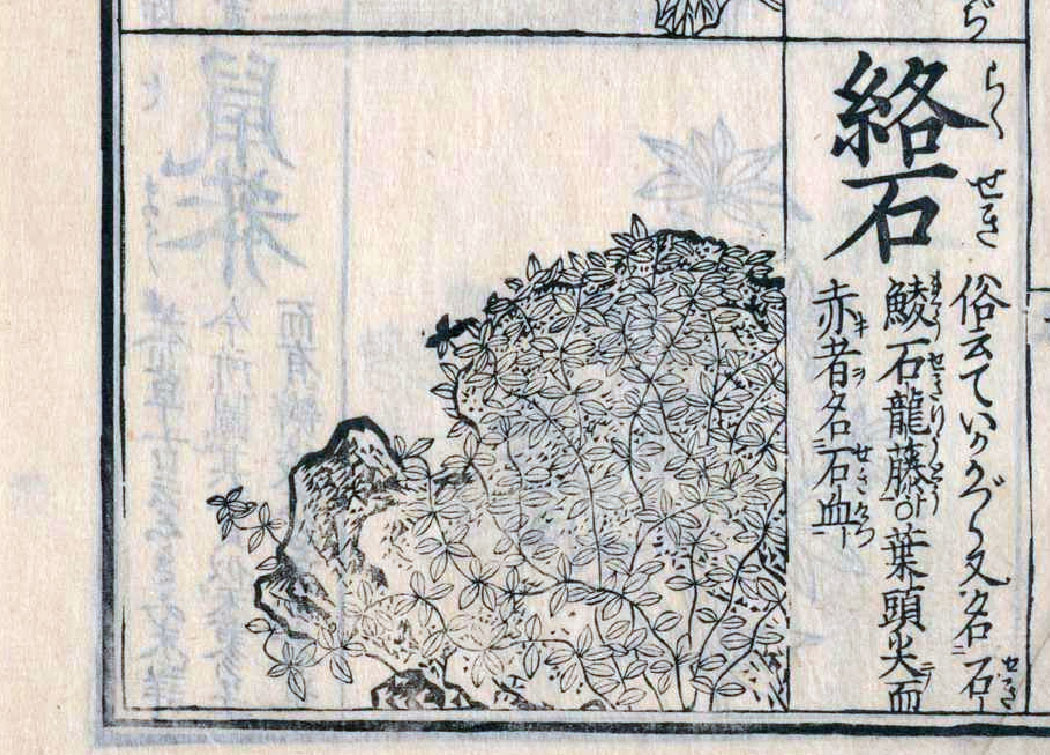 ぢ
らくせき
絡石
俗云ていかかづら又名石
鯪石龍藤○葉頭尖而
赤者名石血